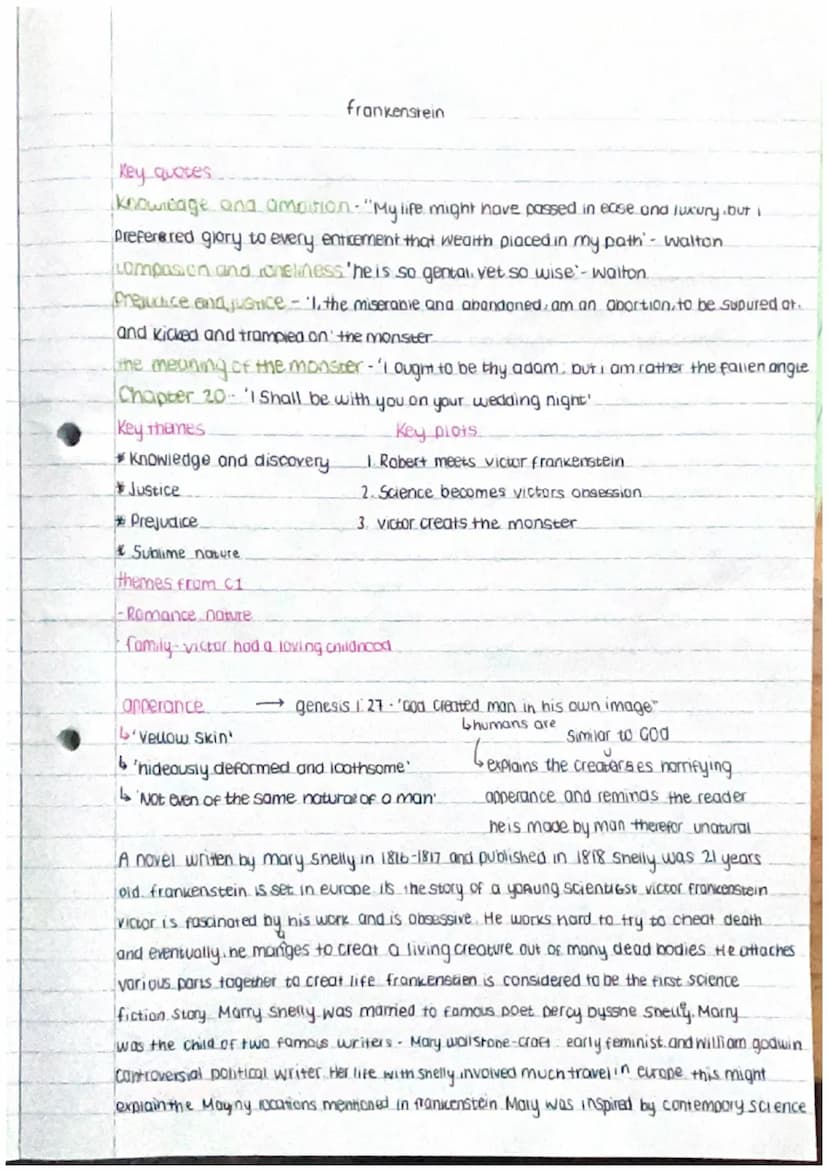 frankenstein
Key quotes
Knowledge and ambition - "My life might have passed in ease and luxury, but i
prefererred glory to every enticement that wealth placed in my path' - Walton
compassion and loneliness 'he is so gental, yet so wise' - Walton
Prejudice and justice - 'I, the miserable and abandoned, am an abortion, to be spured at.
and kicked and trampled on' the monster
the meaning of the monster - 'I ought to be thy adam, but i am rather the fallen angle
Chapter 20 - 'I Shall be with you on your wedding night'
Key themes Key plots
* Knowledge and discovery 1. Robert meets victor frankenstein
* Justice 2. Science becomes victors obsession
* Prejudice 3. victor creats the monster
* Sublime nature
themes from C1
- Romance nature
· family - victor had a loving childhood
apperance → genesis 1:27 - 'God created man in his own image"
↳ 'yellow skin' ↳ humans are similar to GOD
↳ 'hideously deformed and loathsome' ↳ explains the creatarses horrifying
↳ 'Not even of the same natural of a man' apperance and reminds the reader
he is made by man therefor unatural
A novel written by mary Shelly in 1816-1817 and published in 1818 Shelly was 21 years
old. frankenstein is set in europe its the story of a young scientist victor frankenstein
victor is fascinated by his work and is obsessive. He works hard to try to cheat death
and eventually, he manages to creat a living creature out of many dead bodies He attaches
various parts together to creat life frankenstien is considered to be the first science
fiction story. Marry Shelly was married to famous poet percy bysshe Shelly. Marry
was the child of two famous writers - Mary wollstone-craft early feminist. and william godwin
controversial political writer. Her life with shelly involved much travel in europe this might
explain the locations mentioned in frankenstein Mary was inspired by contempory science